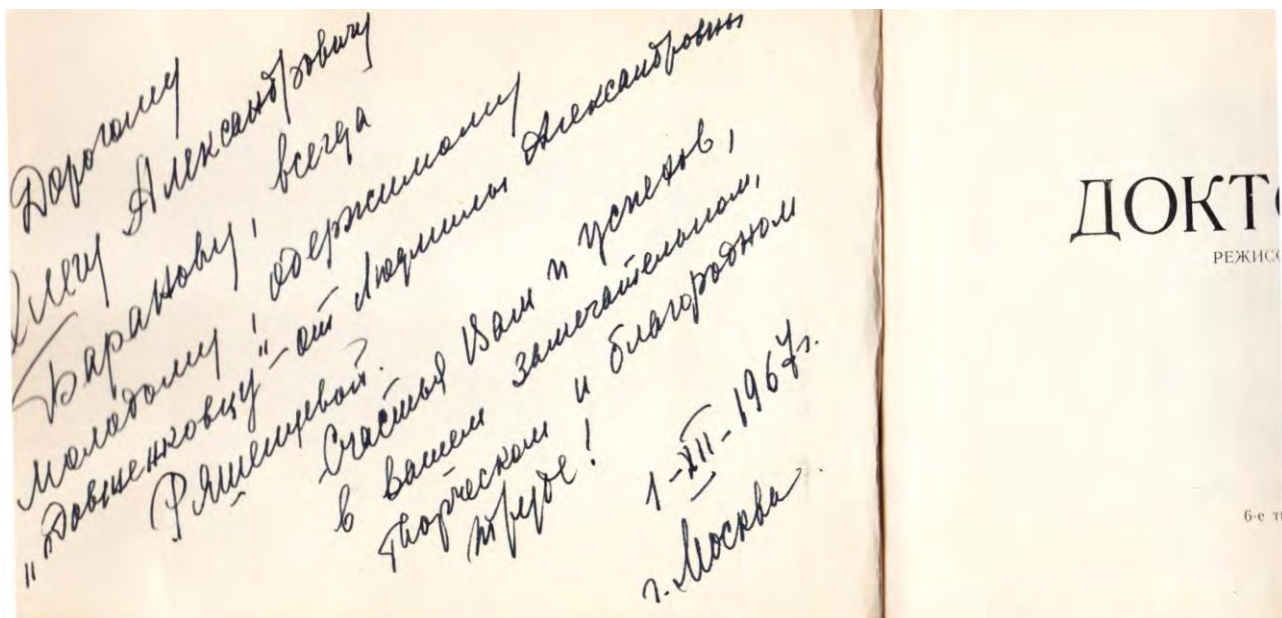 Дорогому
Олегу Александровичу
Баранову, всегда
молодому, одержимому
"Довженковцу" – от Людмилы Александровны
Ряшенцевой?
Счастья Вам и успехов,
в вашем замечательном,
творческом и благородном
труде!
1-XII-1967г.
г. Москва.
ДОКТ
РЕЖИСС
6-е т